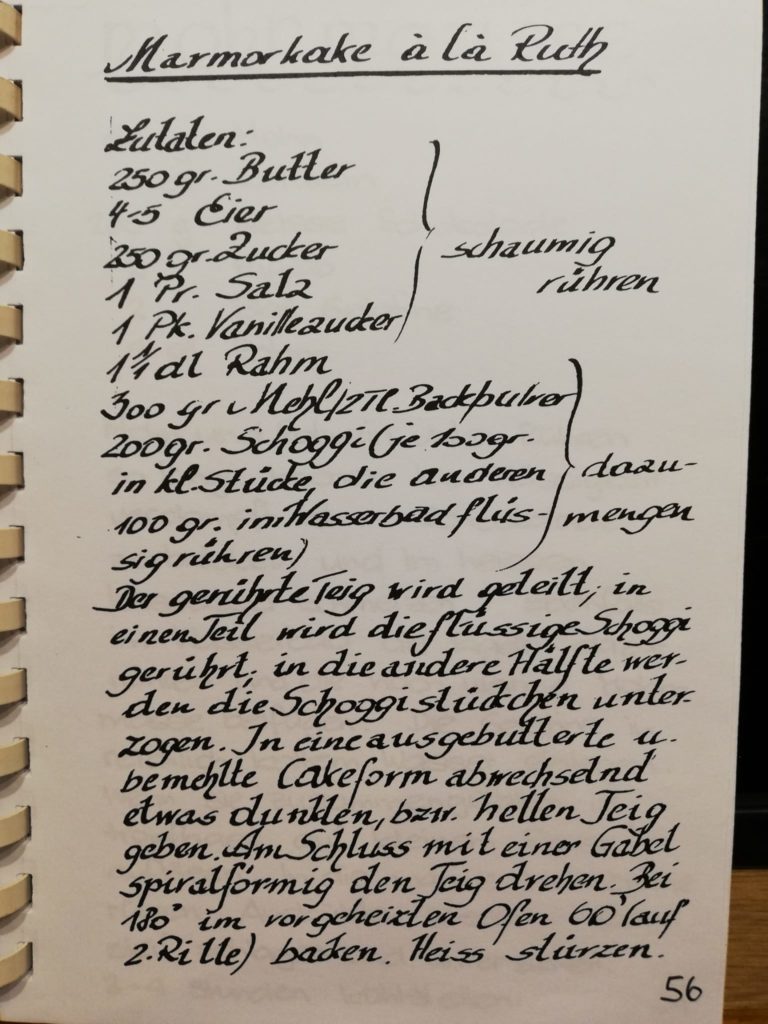 Marmorkake à là Ruth
Zutaten:
250 gr. Butter
4-5 Eier
250 gr. Zucker
1 Pr. Salz
1 Pk. Vanillezucker
schaumig
rühren
dl Rahm
300 gr Mehl/2Tl. Backpulver
200gr. Schoggi (je 100gr.
in kl. Stücke, die anderen
100 gr. im Wasserbad flüs-
sig rühren)
dazu-
mengen
Der gerührte Teig wird geteilt; in
einen Teil wird die flüssige Schoggi
gerührt; in die andere Hälfte wer-
den die Schoggistückchen unter-
zogen. In eine ausgebutterte u.
bemehlte Cakeform abwechselnd
etwas dunklen, bzw. hellen Teig
geben. Am Schluss mit einer Gabel
spiralförmig den Teig drehen. Bei
180° im vorgeheizten Ofen 60' (auf
2. Rille) backen. Heiss stürzen.
56